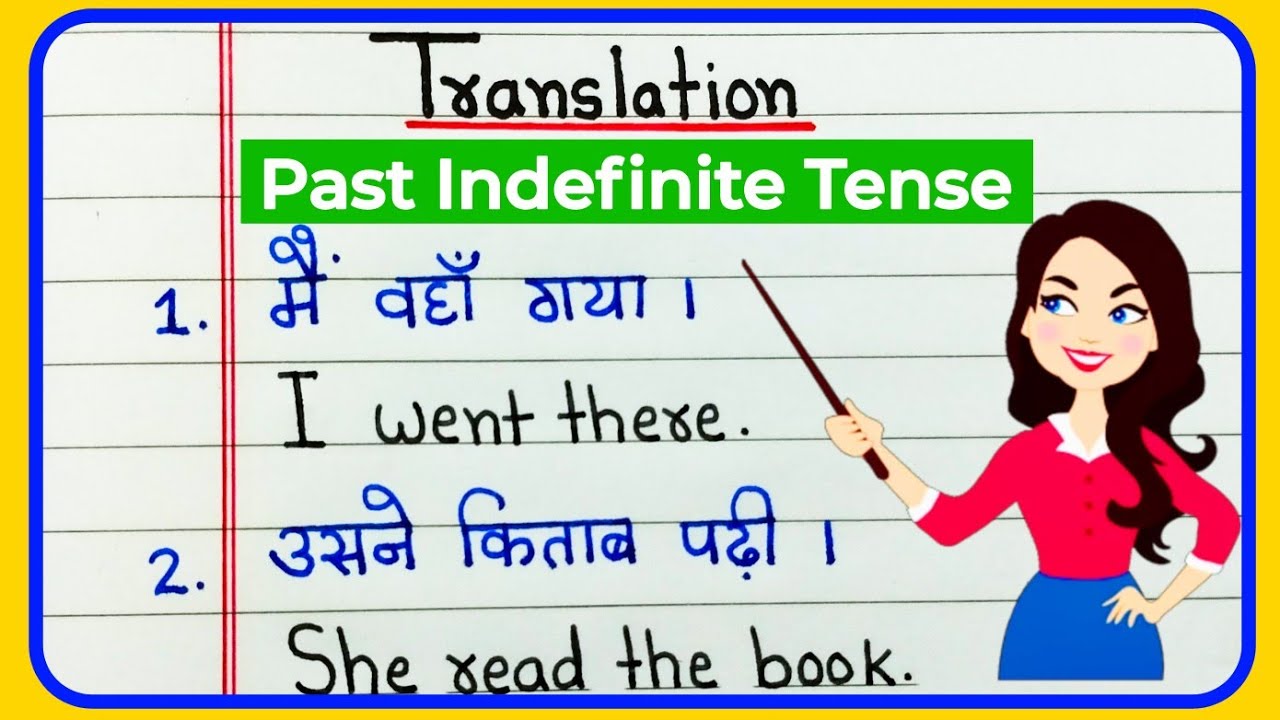 Translation
Past Indefinite Tense
1. मैं वहाँ गया ।
I went there.
2. उसने किताब पढ़ी ।
She read the book.